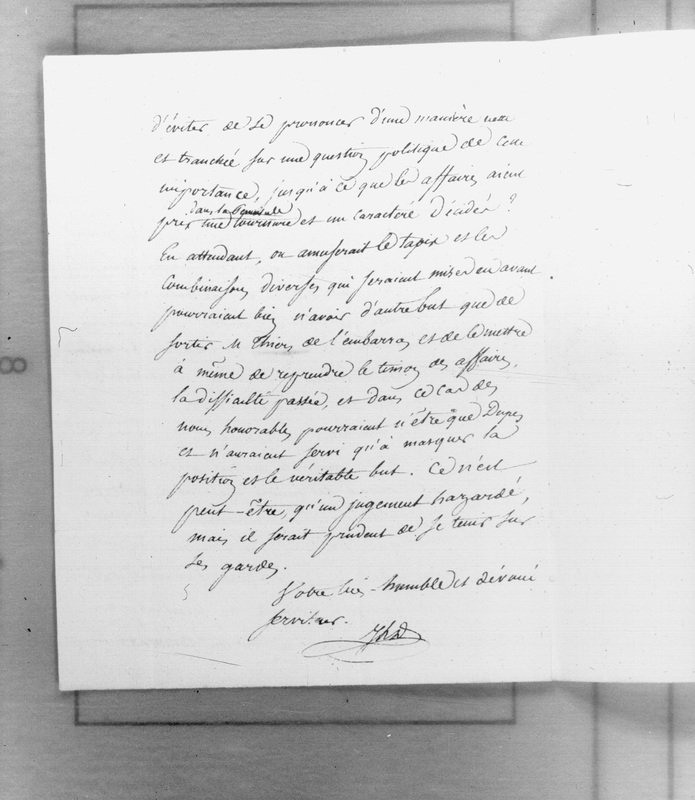 d'éviter de se prononcer d'une manière nette
et tranchée sur une question politique de cette
importance, jusqu'à ce que les affaires aient
dans la Péninsule
pris une tournure et un caractère décidés?
En attendant, on amuserait le tapis et les
Combinaisons diverses qui seraient mises en avant
pourraient bien n'avoir d'autre but que de
sortir M Thiers de l'embarras et de le mettre
à même de reprendre le timon des affaires,
la difficulté passée, et dans ce cas des
noms honorables pourraient n'être que Dupes
et n'auraient servi qu'à masquer la
position et le véritable but. Ce n'est
peut-être, qu'un jugement hazardé,
mais il serait prudent de se tenir sur
ses gardes.
Votre très-humble et dévoué
serviteur.